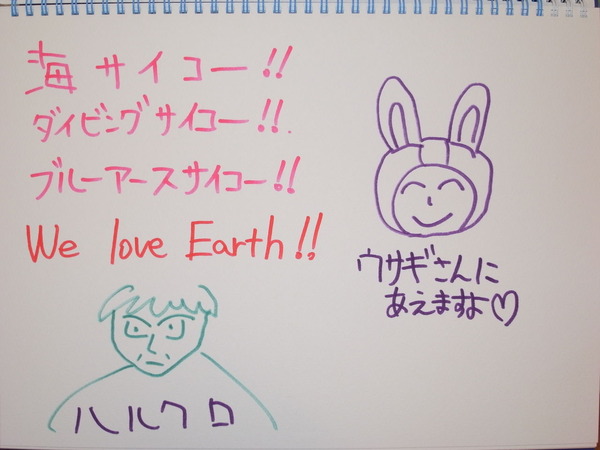 海サイコー!!
ダイビングサイコー!!.
ブルーアースサイコー!!
We love Earth!!
ウサギさんに
あえますよ♡
ハルクロ